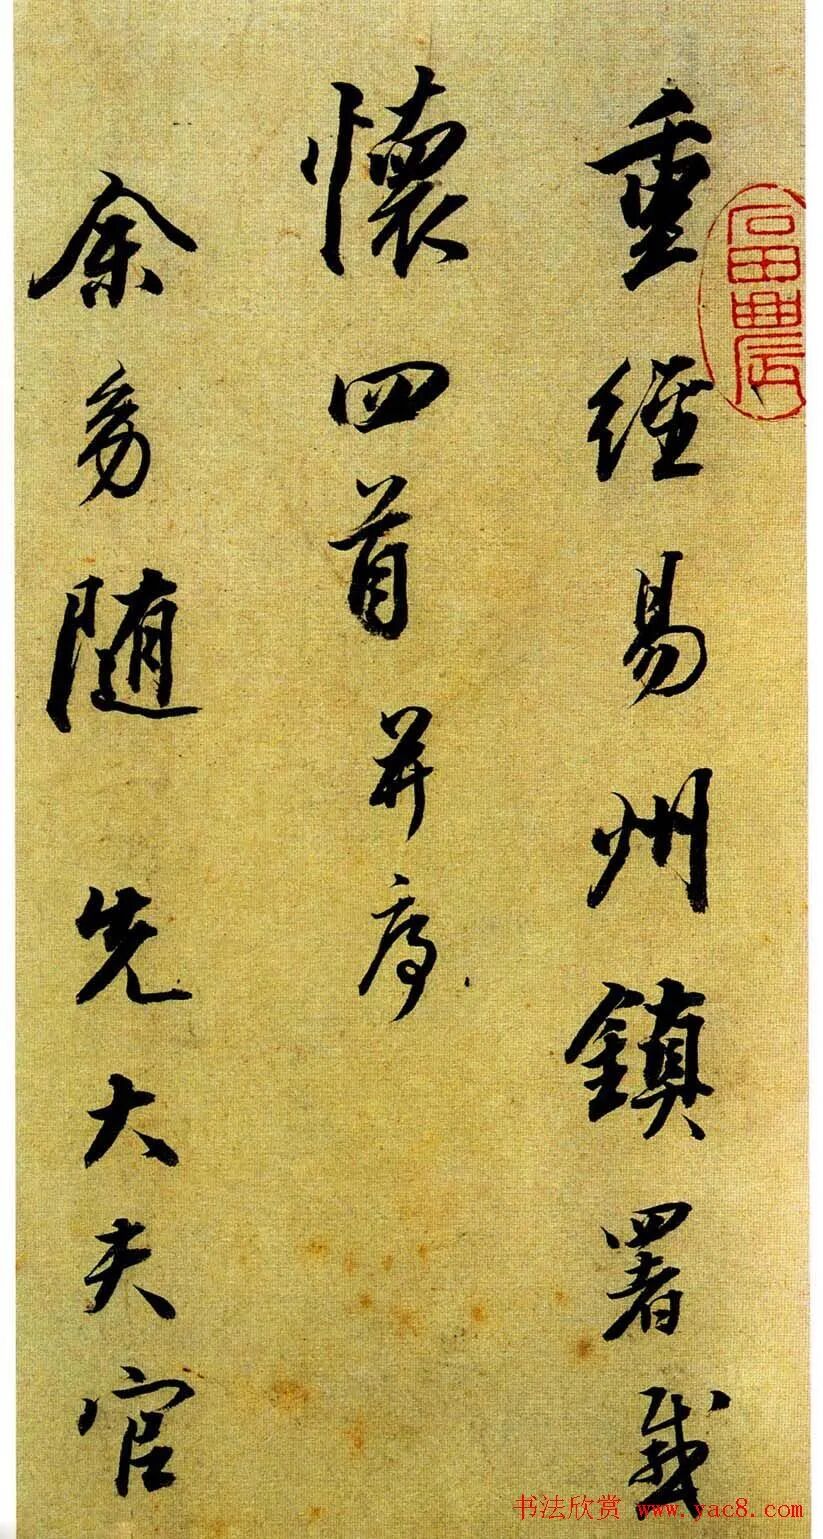 重經易州鎮署感
懷四首并序
余幼随先大夫官
書法欣赏 www.yac8.com